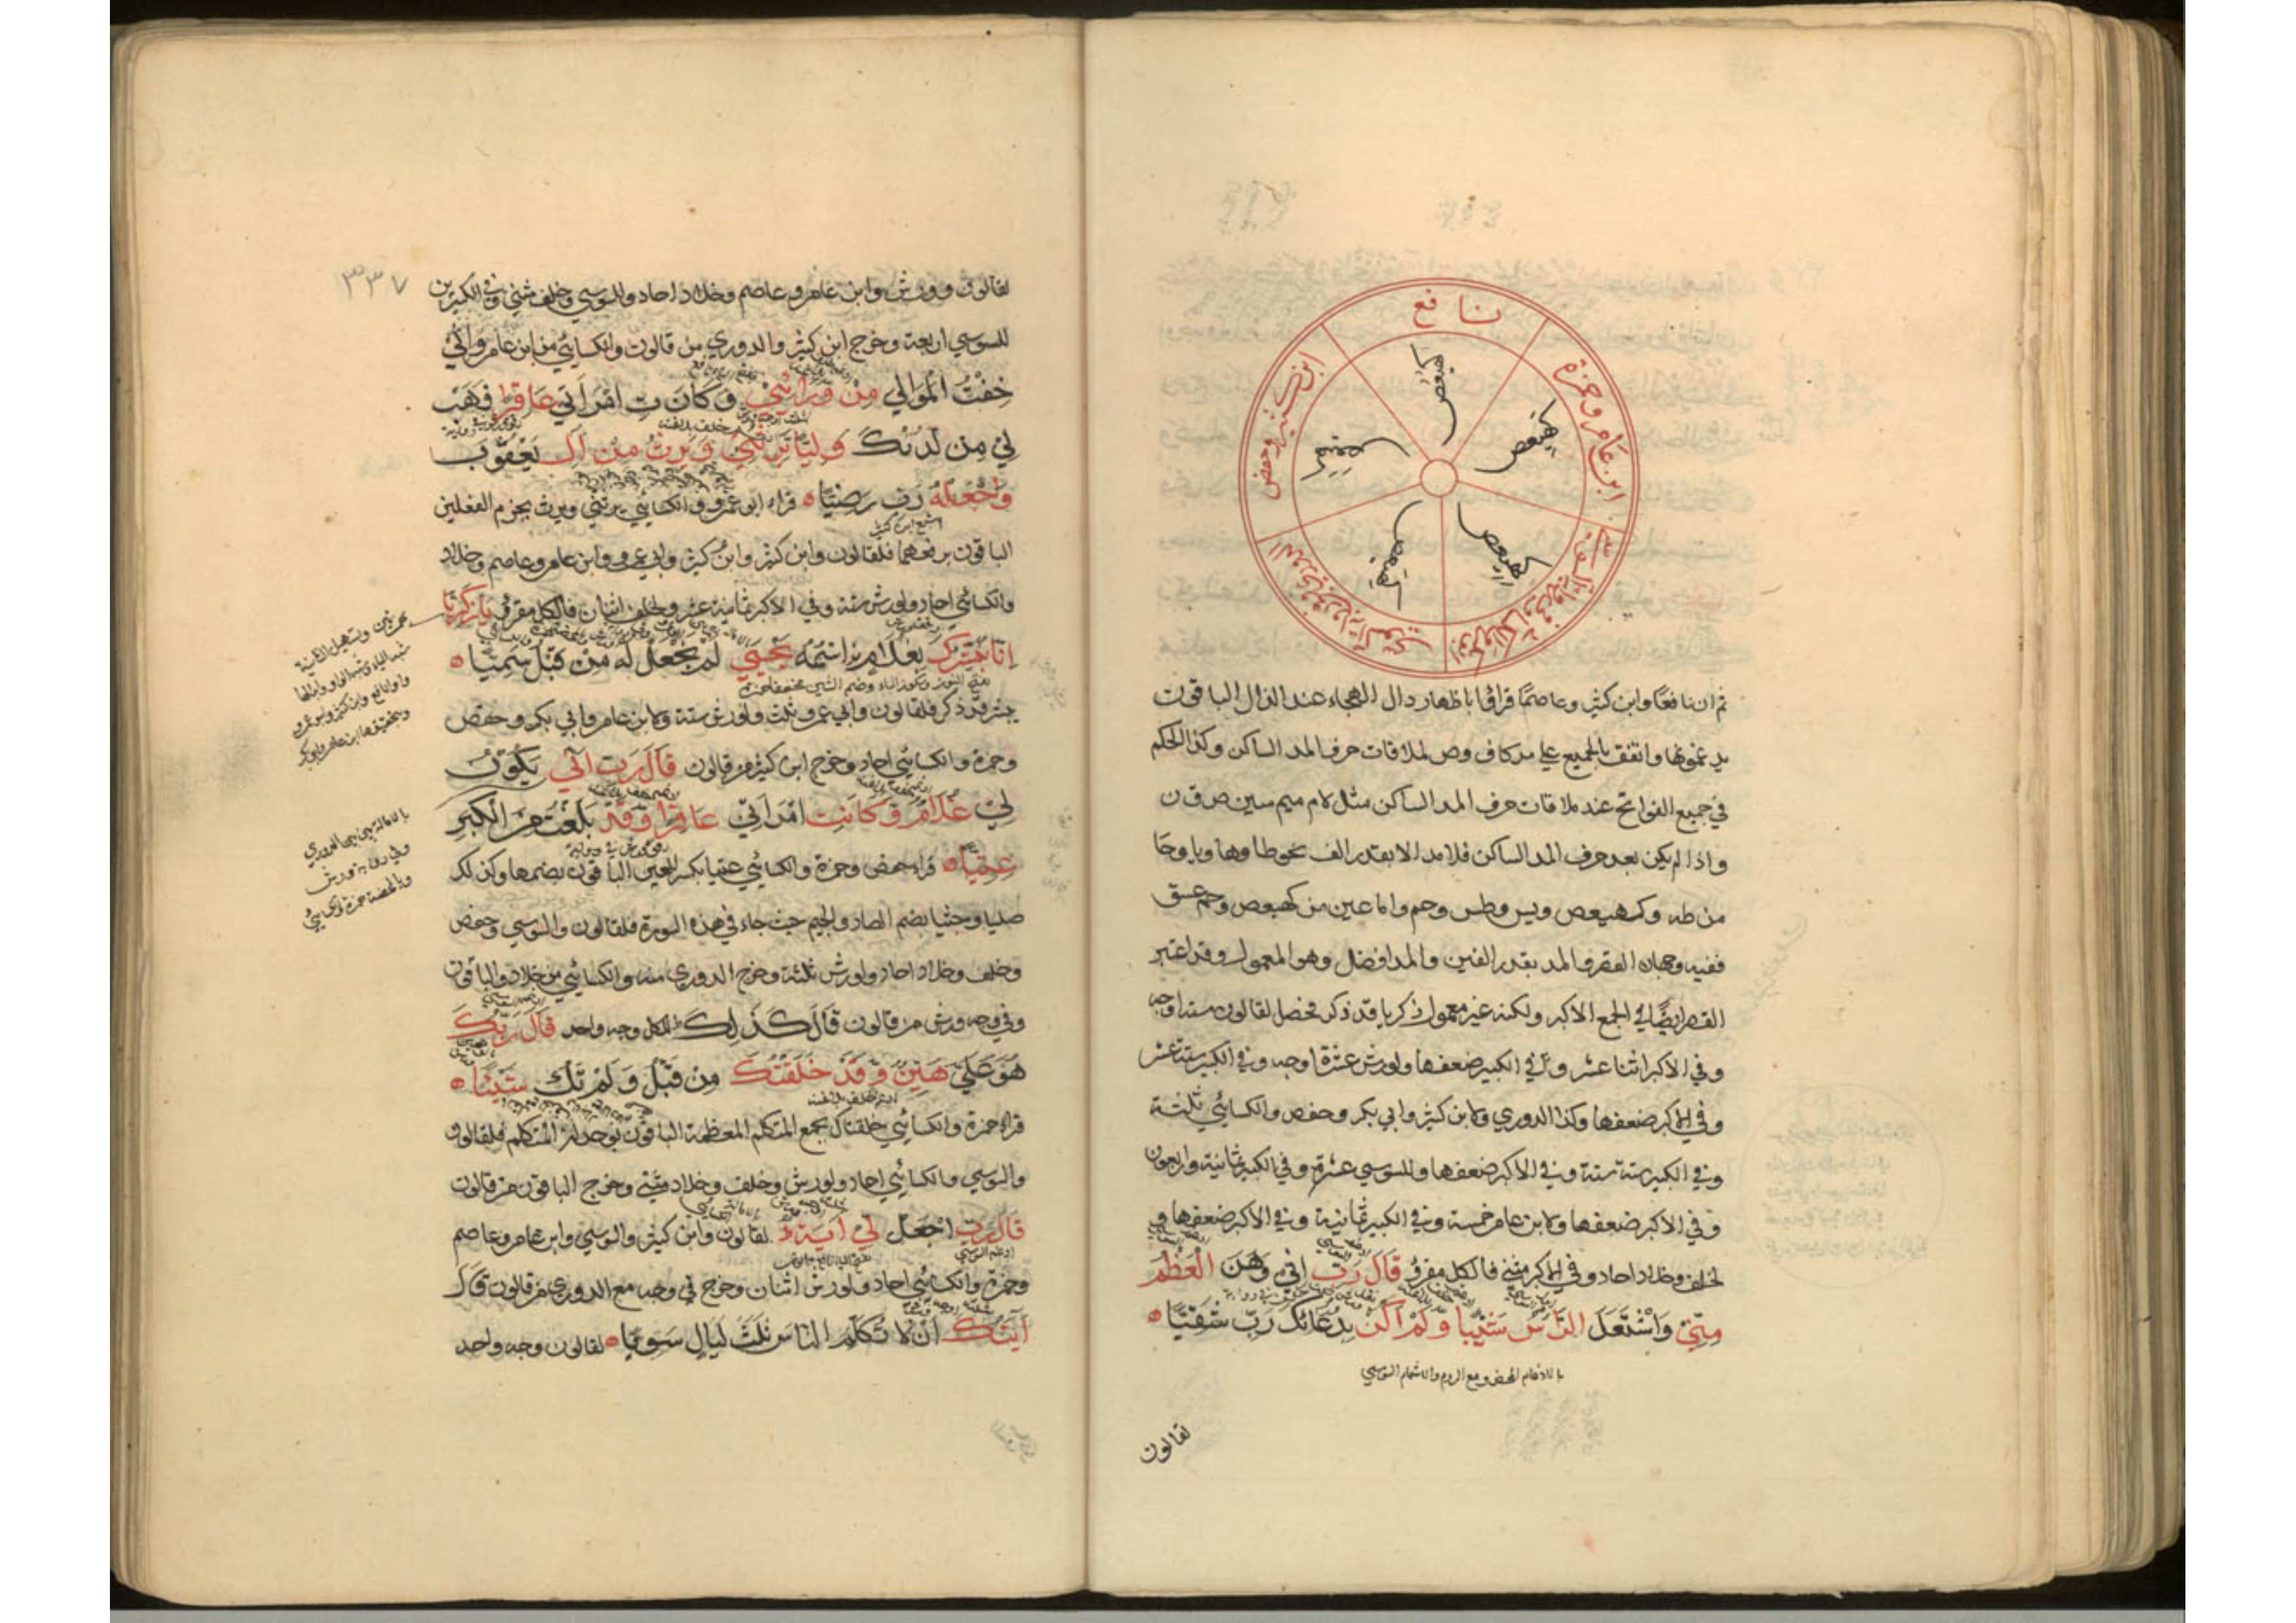 نافع
ابن عامر وحمزة
ابن كثير وحفص
كهيعص
كهيعص
كهيعص
كهيعص
كهيعص
ثم ان نافعًا وابن كثير وعاصمًا قراؤا باظهار دال الهجاء عند الذال الباقون
يدغمونها واتفق الجميع علي مد كاف وص لملاقات حرف المد الساكن وكذا الحكم
في جميع الفواتح عند ملاقات حرف المد الساكن مثل لام ميم سين ص ق ن
واذا لم يكن بعد حرف المد الساكن فلا مد الا بقدر الف نحو طا وها ويا وحا
من طه وكهيعص ويس وطس وحم واما عين من كهيعص وحم عسق
ففيه وجهان القصر والمد بقدر الفين والمد افضل وهو المعمول وقد اعتبر
القصر ايضًا في الجمع الاكبر ولكنه غير معمول زكريا قد ذكر فحصل لقالون ستة اوجه
وفي الاكبر اثنا عشر وفي الكبير ضعفها ولورش عشرة اوجه وفي الكبير ستة عشر
وفي الاكبر ضعفها وكذا الدوري ولابن كثير وابي بكر وحفص والكسائي ثلثة
وفي الكبير ستة ستة وفي الاكبر ضعفها وللسوسي عشرة وفي الكبير ثمانية واربعون
وفي الاكبر ضعفها ولابن عامر خمسة وفي الكبير ثمانية وفي الاكبر ضعفها و
لخلف وخلاد احاد وفي الاكبر مثني فالكل مقروٌ قَالَ رَبِّ اِنِّي وَهَنَ الْعَظْمُ
مِنِّي وَاشْتَعَلَ الرَّاْسُ شَيْبًا وَلَمْ اَكُنْ بِدُعَائِكَ رَبِّ شَقِيًّا
بالادغام المحض ومع الروم والاشمام السوسي
لقالون
٣٣٧
لقالون وورش وابن عامر وعاصم وخلاد احاد وللسوسي وخلف مثني وفي الكبيرين
للسوسي اربعة وخرج ابن كثير والدوري من قالون والكسائي من ابن عامر وَاِنِّي
خِفْتُ الْمَوَالِي مِنْ وَرَائِي وَكَانَتِ امْرَاَتِي عَاقِرًا فَهَبْ
لِي مِن لَدُنْكَ وَلِيًّا يَرِثُنِي وَيَرِثُ مِنْ اٰلِ يَعْقُوبَ
وَاجْعَلْهُ رَبِّ رَضِيًّا قراء ابو عمرو والكسائي يرثني ويرث بجزم الفعلين
الباقون برفعهما فلقالون وابن كثير وابن كثير وابي عمرو وابن عامر وعاصم وخلاد
والكسائي احاد ولورش ستة وفي الاكبر ثمانية عشر ولخلف اثنان فالكل مقروٌ يَا زَكَرِيَّا
اِنَّا نُبَشِّرُكَ بِغُلَامٍ اسْمُهُ يَحْيَى لَمْ نَجْعَلْ لَهُ مِنْ قَبْلُ سَمِيًّا
بفتح النون وسكون الباء وضم الشين مخففا حمزة
يبشر قد ذكر فلقالون وابي عمرو ثلث ولورش ستة ولابن عامر وابي بكر وحفص
وحمزة والكسائي احاد وخرج ابن كثير من قالون قَالَ رَبِّ اَنِّي يَكُونُ
لِي غُلَامٌ وَكَانَتِ امْرَاَتِي عَاقِرًا وَقَدْ بَلَغْتُ مِنَ الْكِبَرِ
عِتِيًّا قراء حفص وحمزة والكسائي عتيا بكسر العين الباقون بضمها وكذلك
صليا وجثيا بضم الصاد والجيم حيث جاء في هذه السورة فلقالون والسوسي وحفص
وخلف وخلاد احاد ولورش ثلثة وخرج الدوري منه والكسائي من خلاد والباقون
وفي وجه ورش من قالون قَالَ كَذٰلِكَ للكل وجه واحد قَالَ رَبُّكَ
هُوَ عَلَيَّ هَيِّنٌ وَقَدْ خَلَقْتُكَ مِنْ قَبْلُ وَلَمْ تَكُ شَيْئًا
قراء حمزة والكسائي خلقناك بجمع المتكلم المعظمة الباقون بتوحيد المتكلم فلقالون
والسوسي والكسائي احاد ولورش وخلف وخلاد مثني وخرج الباقون من قالون
قَالَ رَبِّ اجْعَلْ لِي اٰيَةً لقالون وابن كثير والسوسي وابن عامر وعاصم
وحمزة والكسائي احاد ولورش اثنان وخرج في وجه مع الدوري من قالون قَالَ
اٰيَتُكَ اَنْ لَا تُكَلِّمَ النَّاسَ ثَلٰثَ لَيَالٍ سَوِيًّا لقالون وجه واحد
بهمزتين وتسهيل الثانية